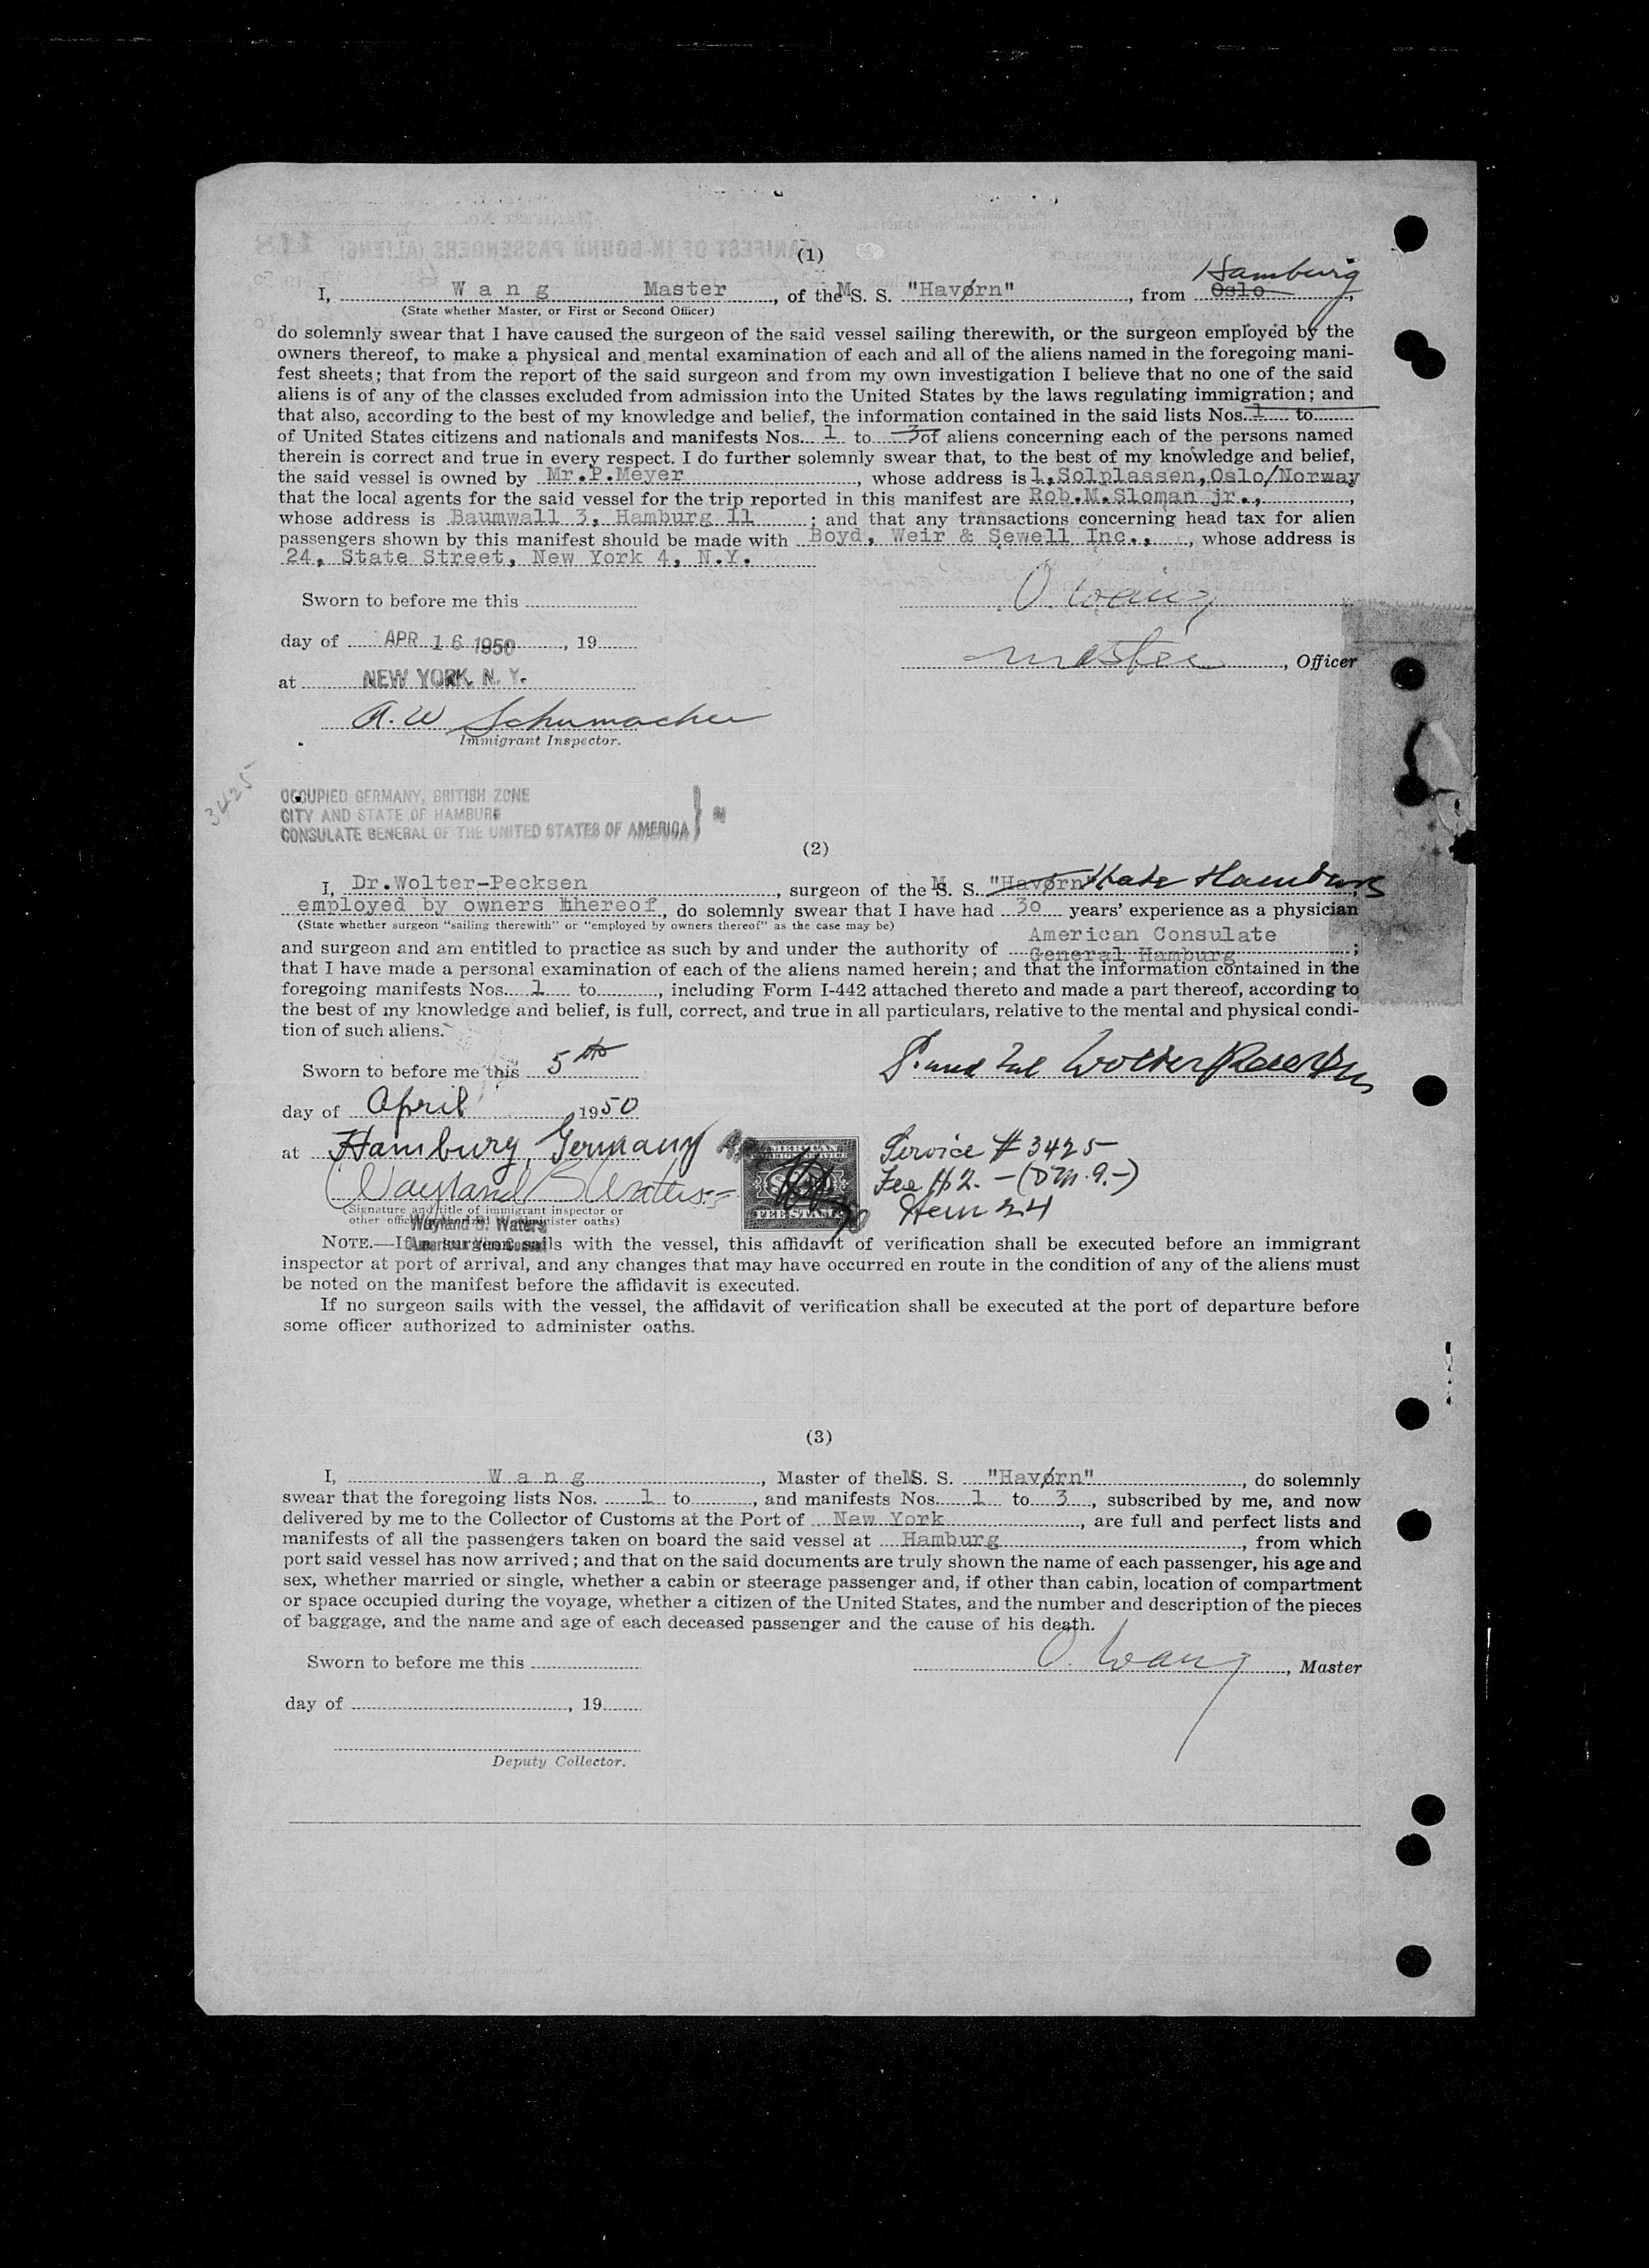 (1)
Hamburg
I, Wang Master, of the M S. S. "Havørn", from Oslo,
(State whether Master, or First or Second Officer)
do solemnly swear that I have caused the surgeon of the said vessel sailing therewith, or the surgeon employed by the
owners thereof, to make a physical and mental examination of each and all of the aliens named in the foregoing mani-
fest sheets; that from the report of the said surgeon and from my own investigation I believe that no one of the said
aliens is of any of the classes excluded from admission into the United States by the laws regulating immigration; and
that also, according to the best of my knowledge and belief, the information contained in the said lists Nos. 1 to
of United States citizens and nationals and manifests Nos. 1 to 3 of aliens concerning each of the persons named
therein is correct and true in every respect. I do further solemnly swear that, to the best of my knowledge and belief,
the said vessel is owned by Mr.P.Meyer, whose address is 1,Solplassen,Oslo/Norway
that the local agents for the said vessel for the trip reported in this manifest are Rob.M.Sloman jr.,,
whose address is Baumwall 3, Hamburg 11; and that any transactions concerning head tax for alien
passengers shown by this manifest should be made with Boyd, Weir & Sewell Inc.,, whose address is
24, State Street, New York 4, N.Y.
Sworn to before me this O. Wang
day of APR 16 1950, 19
master, Officer
at NEW YORK, N. Y.
A. W Schumacher
Immigrant Inspector.
3425
OCCUPIED GERMANY, BRITISH ZONE
CITY AND STATE OF HAMBURG
CONSULATE GENERAL OF THE UNITED STATES OF AMERICA
(2)
I, Dr.Wolter-Pecksen, surgeon of the M S. S. "Havørn" Hamburg
employed by owners thereof, do solemnly swear that I have had 30 years' experience as a physician
(State whether surgeon "sailing therewith" or "employed by owners thereof" as the case may be)
American Consulate
and surgeon and am entitled to practice as such by and under the authority of General Hamburg;
that I have made a personal examination of each of the aliens named herein; and that the information contained in the
foregoing manifests Nos. 1 to, including Form I-442 attached thereto and made a part thereof, according to
the best of my knowledge and belief, is full, correct, and true in all particulars, relative to the mental and physical condi-
tion of such aliens.
Sworn to before me this 5th
day of April 1950
at Hamburg, Germany
Service # 3425
Fee $2. - (DM. 9.-)
Item 24
AMERICAN
FOREIGN SERVICE
FEE STAMP
Wayland B Waters
(Signature and title of immigrant inspector or
other officer authorized to administer oaths)
Wayland B. Waters
American Vice Consul
NOTE.—If a surgeon sails with the vessel, this affidavit of verification shall be executed before an immigrant
inspector at port of arrival, and any changes that may have occurred en route in the condition of any of the aliens must
be noted on the manifest before the affidavit is executed.
If no surgeon sails with the vessel, the affidavit of verification shall be executed at the port of departure before
some officer authorized to administer oaths.
(3)
I, Wang, Master of the M S. S. "Havørn", do solemnly
swear that the foregoing lists Nos. 1 to, and manifests Nos. 1 to 3, subscribed by me, and now
delivered by me to the Collector of Customs at the Port of New York, are full and perfect lists and
manifests of all the passengers taken on board the said vessel at Hamburg, from which
port said vessel has now arrived; and that on the said documents are truly shown the name of each passenger, his age and
sex, whether married or single, whether a cabin or steerage passenger and, if other than cabin, location of compartment
or space occupied during the voyage, whether a citizen of the United States, and the number and description of the pieces
of baggage, and the name and age of each deceased passenger and the cause of his death.
Sworn to before me this O. Wang, Master
day of, 19
Deputy Collector.